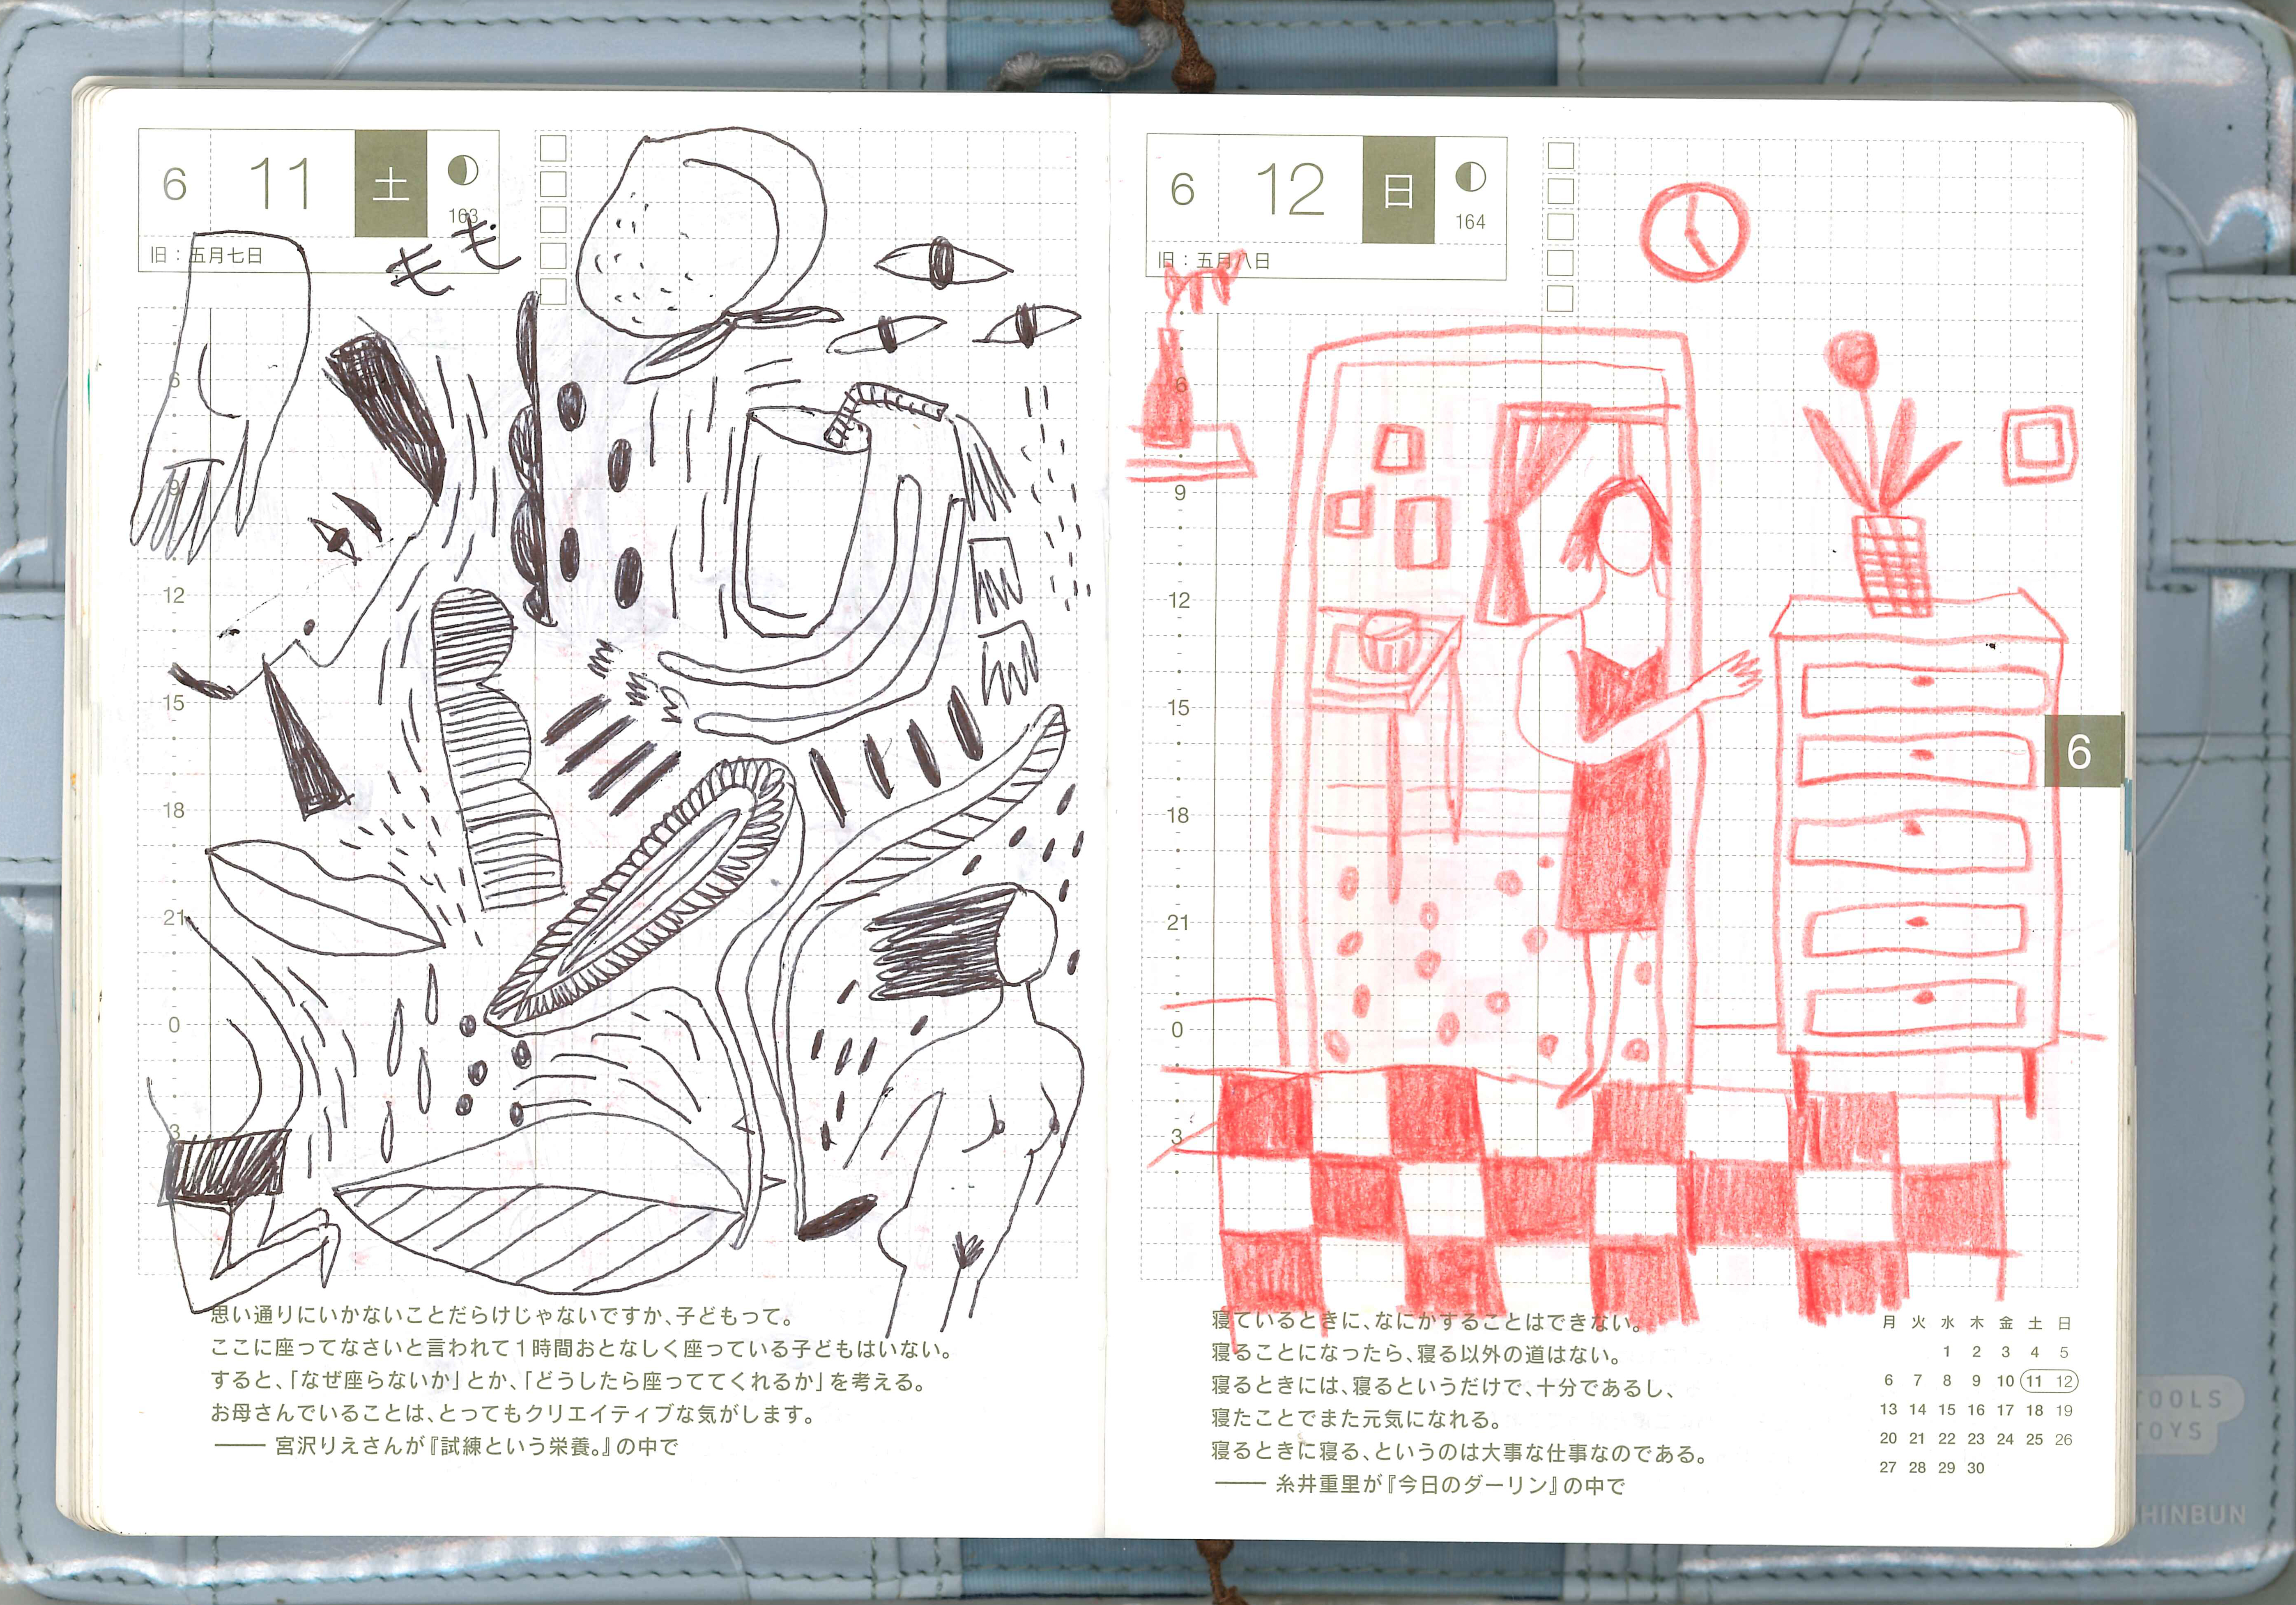 6 11 土
163
旧：五月七日
モモ
6
9
12
15
18
21
0
3
思い通りにいかないことだらけじゃないですか、子どもって。
ここに座ってなさいと言われて1時間おとなしく座っている子どもはいない。
すると、「なぜ座らないか」とか、「どうしたら座っててくれるか」を考える。
お母さんでいることは、とってもクリエイティブな気がします。
―― 宮沢りえさんが『試練という栄養。』の中で
6 12 日
164
旧：五月八日
6
9
12
15
18
21
0
3
6
寝ているときに、なにかすることはできない。
寝ることになったら、寝る以外の道はない。
寝るときには、寝るというだけで、十分であるし、
寝たことでまた元気になれる。
寝るときに寝る、というのは大事な仕事なのである。
―― 糸井重里が『今日のダーリン』の中で
月 火 水 木 金 土 日
1 2 3 4 5
6 7 8 9 10 11 12
13 14 15 16 17 18 19
20 21 22 23 24 25 26
27 28 29 30
TOOLS
TOYS
SHINBUN